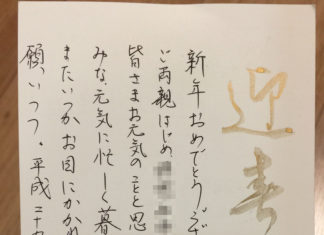 迎春
新年おめでとうござ
ご両親はじめ、
皆さまお元気のことと思
みな、元気に忙しく暮
またいつかお目にかかれ
願いつつ。平成二十九